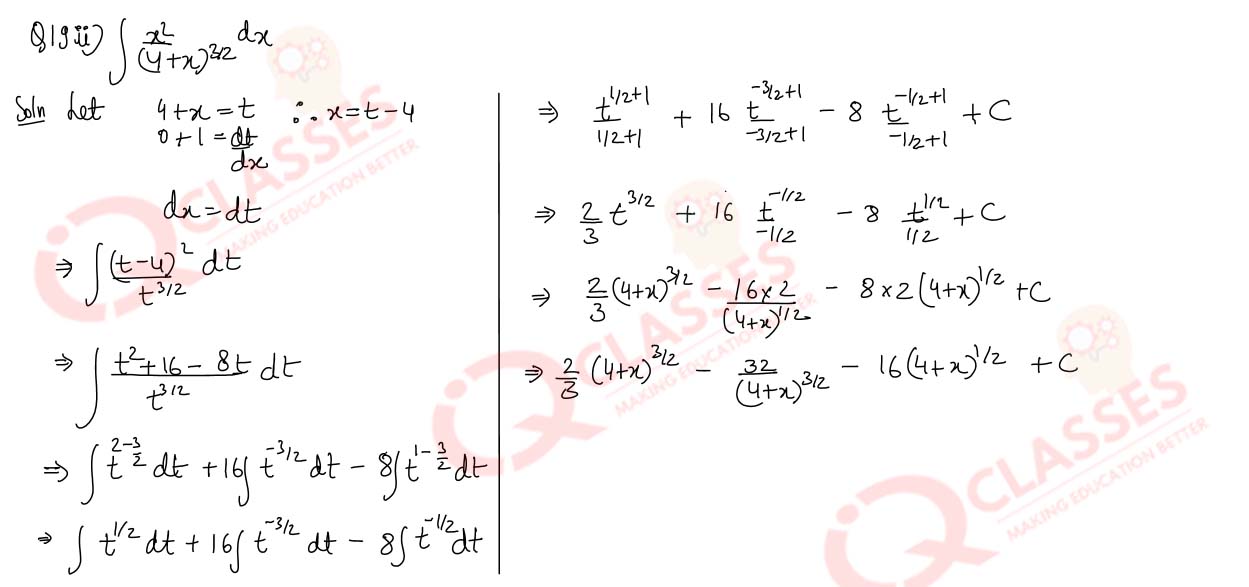 Q19 ii) ∫ x²/(4+x)^3/2 dx
Soln Let 4+x = t ∴ x = t-4
0+1 = dt/dx
dx = dt
⇒ ∫ (t-4)²/t^3/2 dt
⇒ ∫ (t²+16-8t)/t^3/2 dt
⇒ ∫ t^(2-3/2) dt + 16∫ t^-3/2 dt - 8∫ t^(1-3/2) dt
⇒ ∫ t^1/2 dt + 16∫ t^-3/2 dt - 8∫ t^-1/2 dt
⇒ t^(1/2+1)/(1/2+1) + 16 t^(-3/2+1)/(-3/2+1) - 8 t^(-1/2+1)/(-1/2+1) + C
⇒ 2/3 t^3/2 + 16 t^-1/2/(-1/2) - 8 t^1/2/(1/2) + C
⇒ 2/3 (4+x)^3/2 - 16×2/(4+x)^1/2 - 8×2(4+x)^1/2 + C
⇒ 2/3 (4+x)^3/2 - 32/(4+x)^3/2 - 16(4+x)^1/2 + C
CLASSES
MAKING EDUCATION BETTER
CLASSES
MAKING EDUCATION BETTER
CLASSES
MAKING EDUCATION BETTER